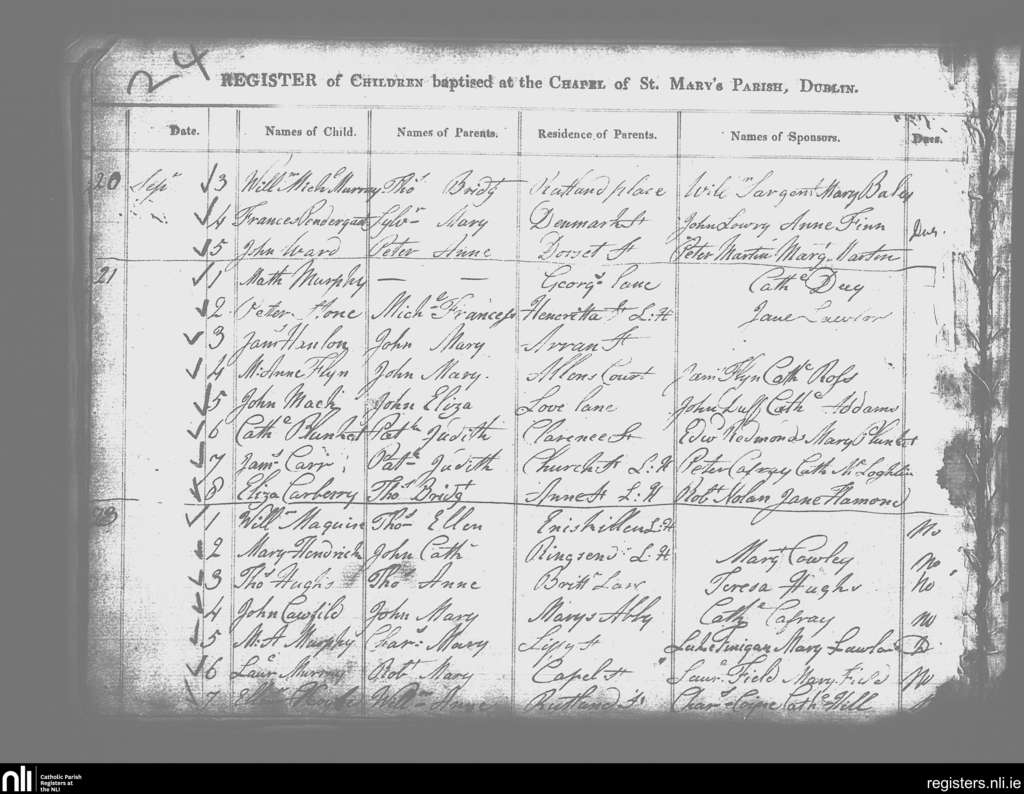 24
REGISTER of CHILDREN baptised at the CHAPEL of St. MARY's PARISH, DUBLIN.
Date. Names of Child. Names of Parents. Residence of Parents. Names of Sponsors. Dues.
20 Sepr 3 Willm Michl Murray Thos Bridgt Rutland place Will Sargent Mary Bales
4 Frances Pendergast Sylvr Mary Denmark St John Lowry Anne Finn
5 John Ward Peter Anne Dorset St Peter Martin Margt Martin
21 1 Math Murphy — — Georgs lane Cathe Duy
2 Peter Stone Miche Frances Henerietta St L:H Jane Lawlor
3 Jams Hanlon John Mary Arran St
4 M. Anne Flyn John Mary. Allens Court Jams Flyn Cathe Ross
5 John Mack John Eliza Love lane John Luff Cathe Addams
6 Cathe Blunket Patk Judith Clarence St Edwd Redmond Mary Plunket
7 Jams Carr Patk Judith Church St L:H Peter Cafray Cath McLoghlin
8 Eliza Carberry Thos Bridgt Anne St L:H Robt Nolan Jane Hamond
23 1 Willm Maguire Thos Ellen Eniskillen L:H No
2 Mary Hendrick John Cath Ringsend L:H Mary Cowley No
3 Thos Hughs Thos Anne Britn Lane Teresa Hughs No
4 John Cawfild John Mary Marys Abby Cathe Cafray No
5 M. A Murphy Chars Mary Liffy St Luke Finigan Mary Lawlor D
6 Laur Murray Robt Mary Capel St Laur. Field Mary Field No
7 Willm Anne Rutland St Chars Coyne Cathe Hill
nli
Catholic Parish
Registers at
the NLI
registers.nli.ie